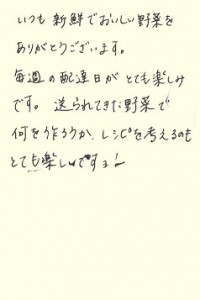 いつも新鮮でおいしい野菜を
ありがとうございます。
毎週の配達日がとても楽しみ
です。送られてきた野菜で
何を作ろうか、レシピを考えるのも
とても楽しいですョ!